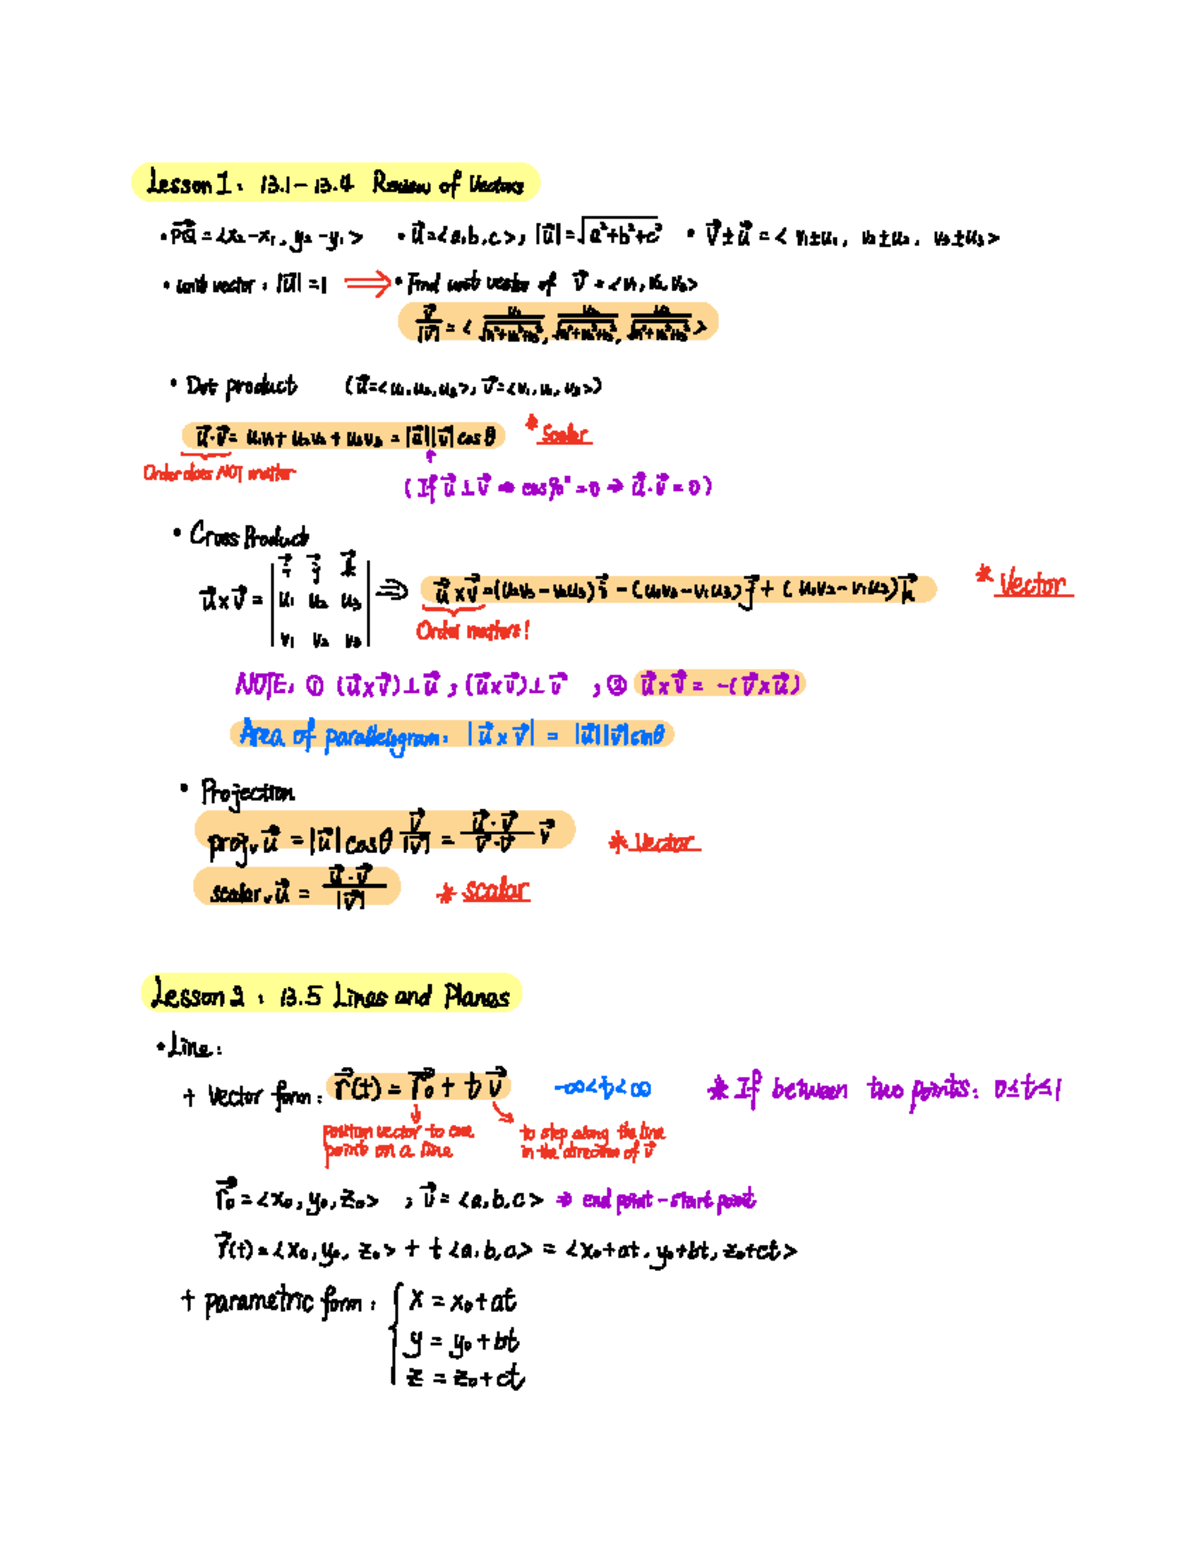 Lesson 1: 13.1 – 13.4 Review of Vectors
• PQ⃗ = <x₂-x₁, y₂-y₁> • u⃗ = <a,b,c>, |u⃗| = √(a²+b²+c²) • v⃗±u⃗ = < v₁±u₁, v₂±u₂, v₃±u₃>
• unit vector: |u⃗| = 1 ⟹ • Find unit vector of v⃗ = <v₁, v₂, v₃>
v⃗/|v⃗| = <
• Dot product (u⃗=<u₁,u₂,u₃>, v⃗=<v₁,v₂,v₃>)
u⃗·v⃗ = u₁v₁ + u₂v₂ + u₃v₃ = |u⃗||v⃗| cos θ * Scalar
Order does NOT matter
(If u⃗ ⊥ v⃗ ⇒ cos 90° = 0 ⇒ u⃗·v⃗ = 0)
• Cross Product
u⃗ x v⃗ = | i⃗ j⃗ k⃗ |
| u₁ u₂ u₃ |
| v₁ v₂ v₃ |
⇒ u⃗ x v⃗ = (u₂v₃ - v₂u₃) i⃗ - (u₁v₃ - v₁u₃) j⃗ + (u₁v₂ - v₁u₂) k⃗ * Vector
Order matters!
NOTE: ① (u⃗ x v⃗) ⊥ u⃗ , (u⃗ x v⃗) ⊥ v⃗ , ② u⃗ x v⃗ = -(v⃗ x u⃗)
Area of parallelogram: |u⃗ x v⃗| = |u⃗||v⃗| sin θ
• Projection
projᵥ u⃗ = |u⃗| cos θ v⃗/|v⃗| = (u⃗·v⃗)/(v⃗·v⃗) v⃗ * Vector
scalarᵥ u⃗ = (u⃗·v⃗)/|v⃗| * scalar
Lesson 2 : 13.5 Lines and Planes
• Line:
+ Vector form: r⃗(t) = r⃗₀ + t v⃗ -∞<t<∞ * If between two points: 0≤t≤1
position vector to one
points on a line
to step along the line
in the direction of v⃗
r⃗₀ = <x₀, y₀, z₀> , v⃗ = <a,b,c> ⇒ end point - start point
r⃗(t) = <x₀, y₀, z₀> + t <a,b,c> = <x₀+at, y₀+bt, z₀+ct>
+ parametric form: { x = x₀+at
y = y₀+bt
z = z₀+ct